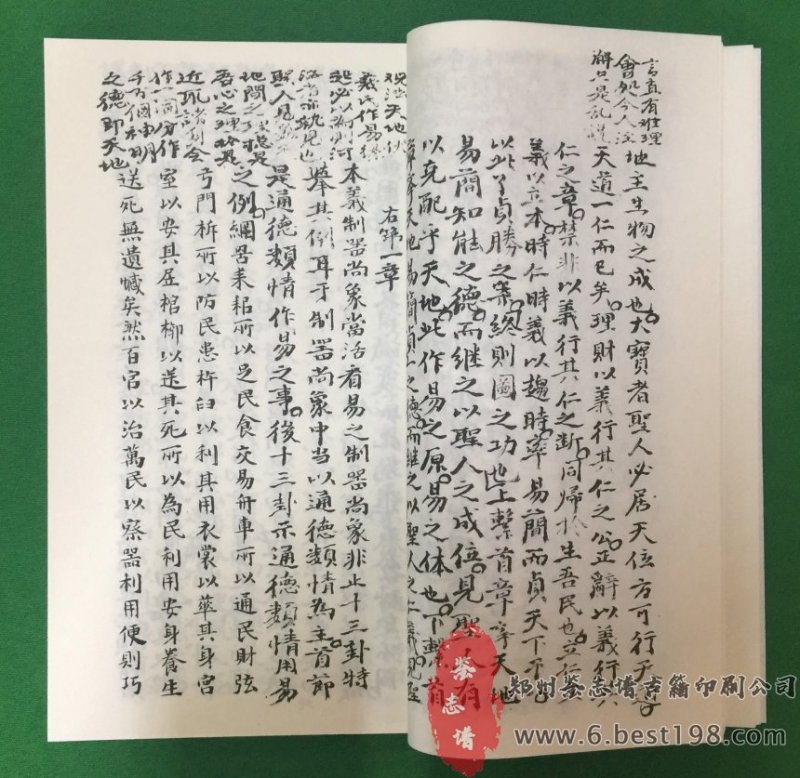 言直有推理
會処令人注
解只是乱説
地主生物之成也大寶者聖人必居天位方可行天
天道一仁而已矣理財以義行其仁之公正辭以義行其
仁之章禁非以義行其仁之断同歸於生吾民也立仁
義以立本時仁時義以趨時率易簡而貞天下
以此貞勝之終則圖之功也上繫首章享天地
易簡知能之德而継之以聖人之成位見聖人有
以克配乎天地此作易之原易之体也下繫首
天地易簡之德而継之以聖人之上見聖
右第一章
観法天地伏
羲氏作易
処必以為則河
聖人見
地間之總是
吾心之理
近取諸
作一個分作
千万個神明
之德即天地
本義制器尚象當活看易之制器尚象非止十三卦特
舉其例耳于制器尚象中当以通德類情為主首節
是通德類情作易之事後十三卦示通德類情用易
之例網罟耒耜所以足民食交易舟車所以通民財弦
弓門柝所以防民患杵臼以利其用衣裳以華其身宮
室以安其居棺椁以送其死所以為民利用安身養生
送死無遺憾矣然百官以治萬民以察器利用便則巧
鉴志谱
郑州鉴志谱古籍印刷公司
www.6.best198.com